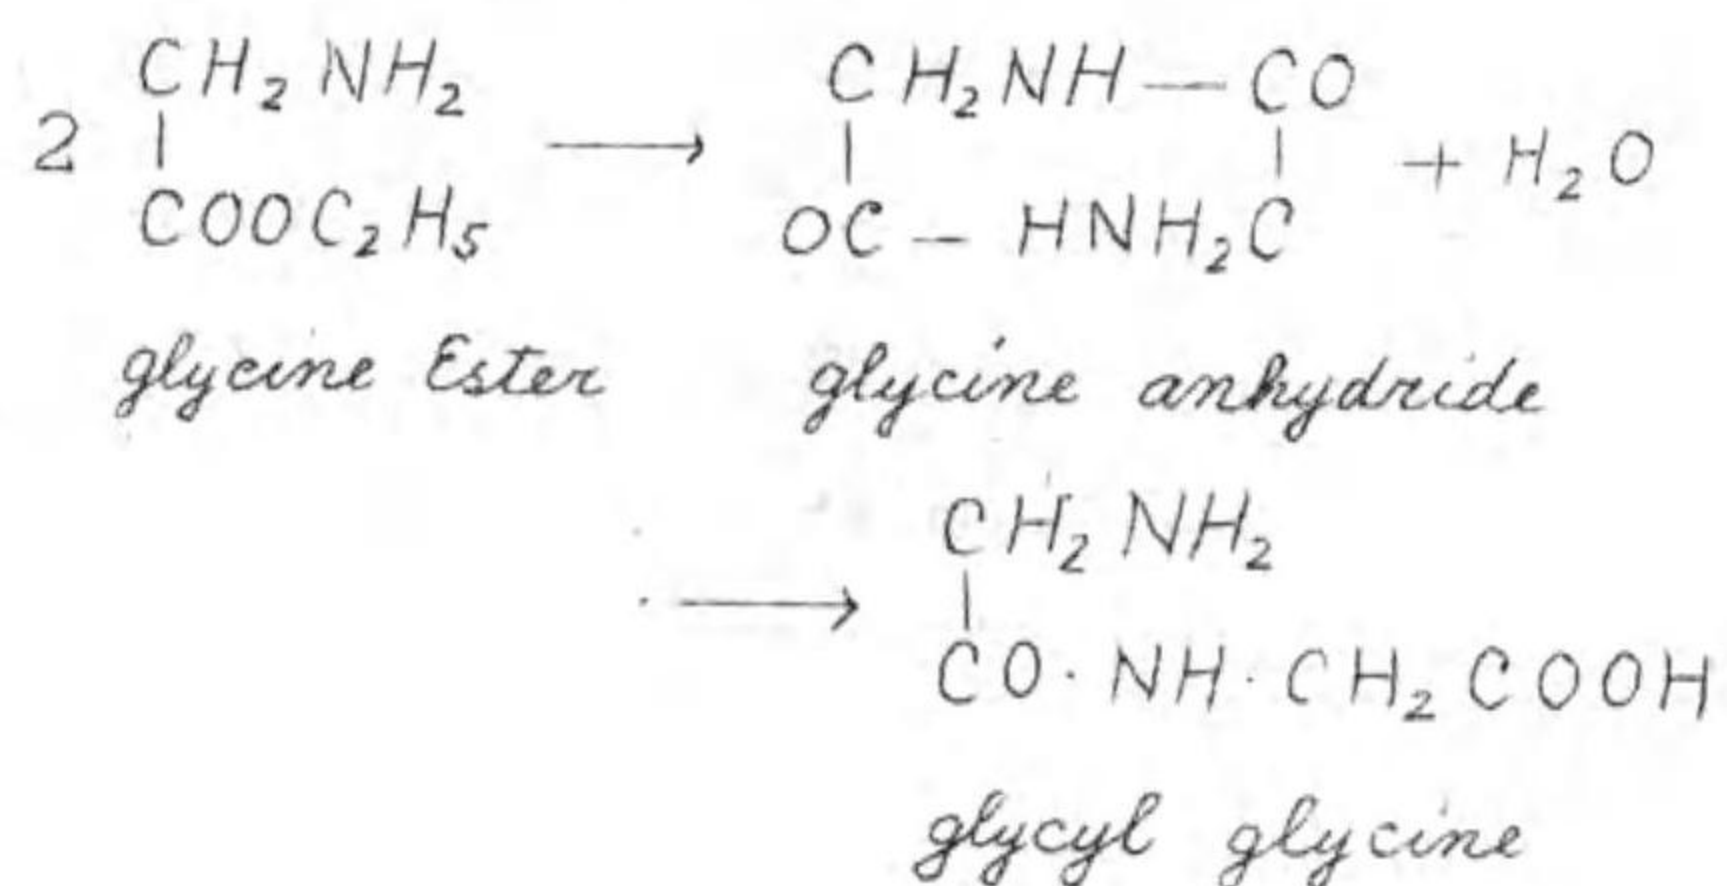 CH₂NH₂ CH₂NH — CO
2 | ⟶ | | + H₂O
COOC₂H₅ OC — HNH₂C
glycine Ester glycine anhydride
CH₂NH₂
⟶ |
CO·NH·CH₂COOH
glycyl glycine